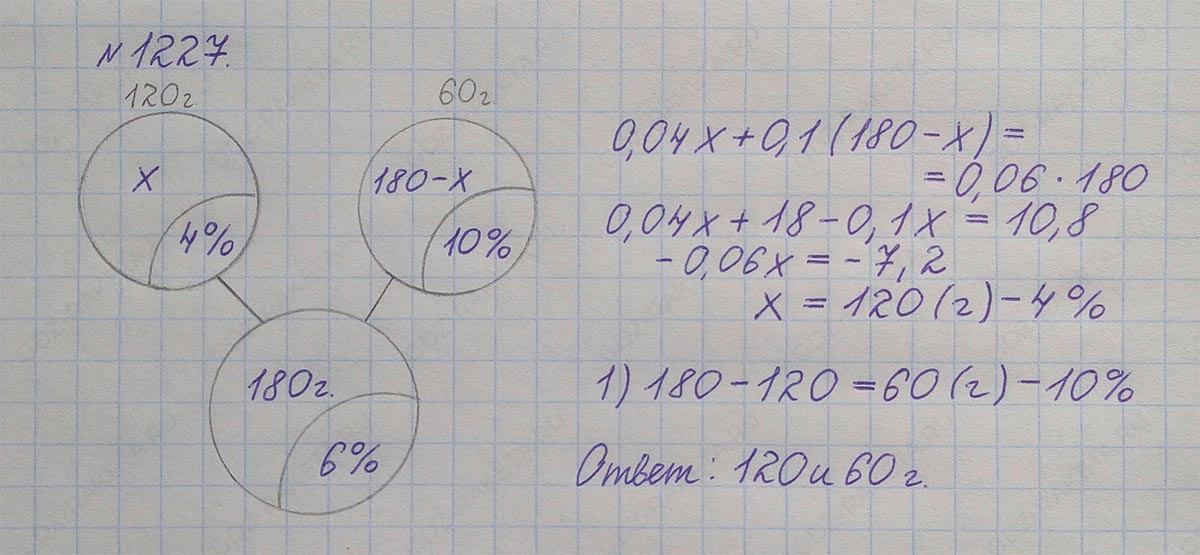 №1227.
120г
60г
x
4%
180-x
10%
180г.
6%
0,04x+0,1(180-x)=
=0,06·180
0,04x+18-0,1x=10,8
-0,06x=-7,2
x=120(г)-4%
1) 180-120=60(г)-10%
Ответ: 120 и 60 г.